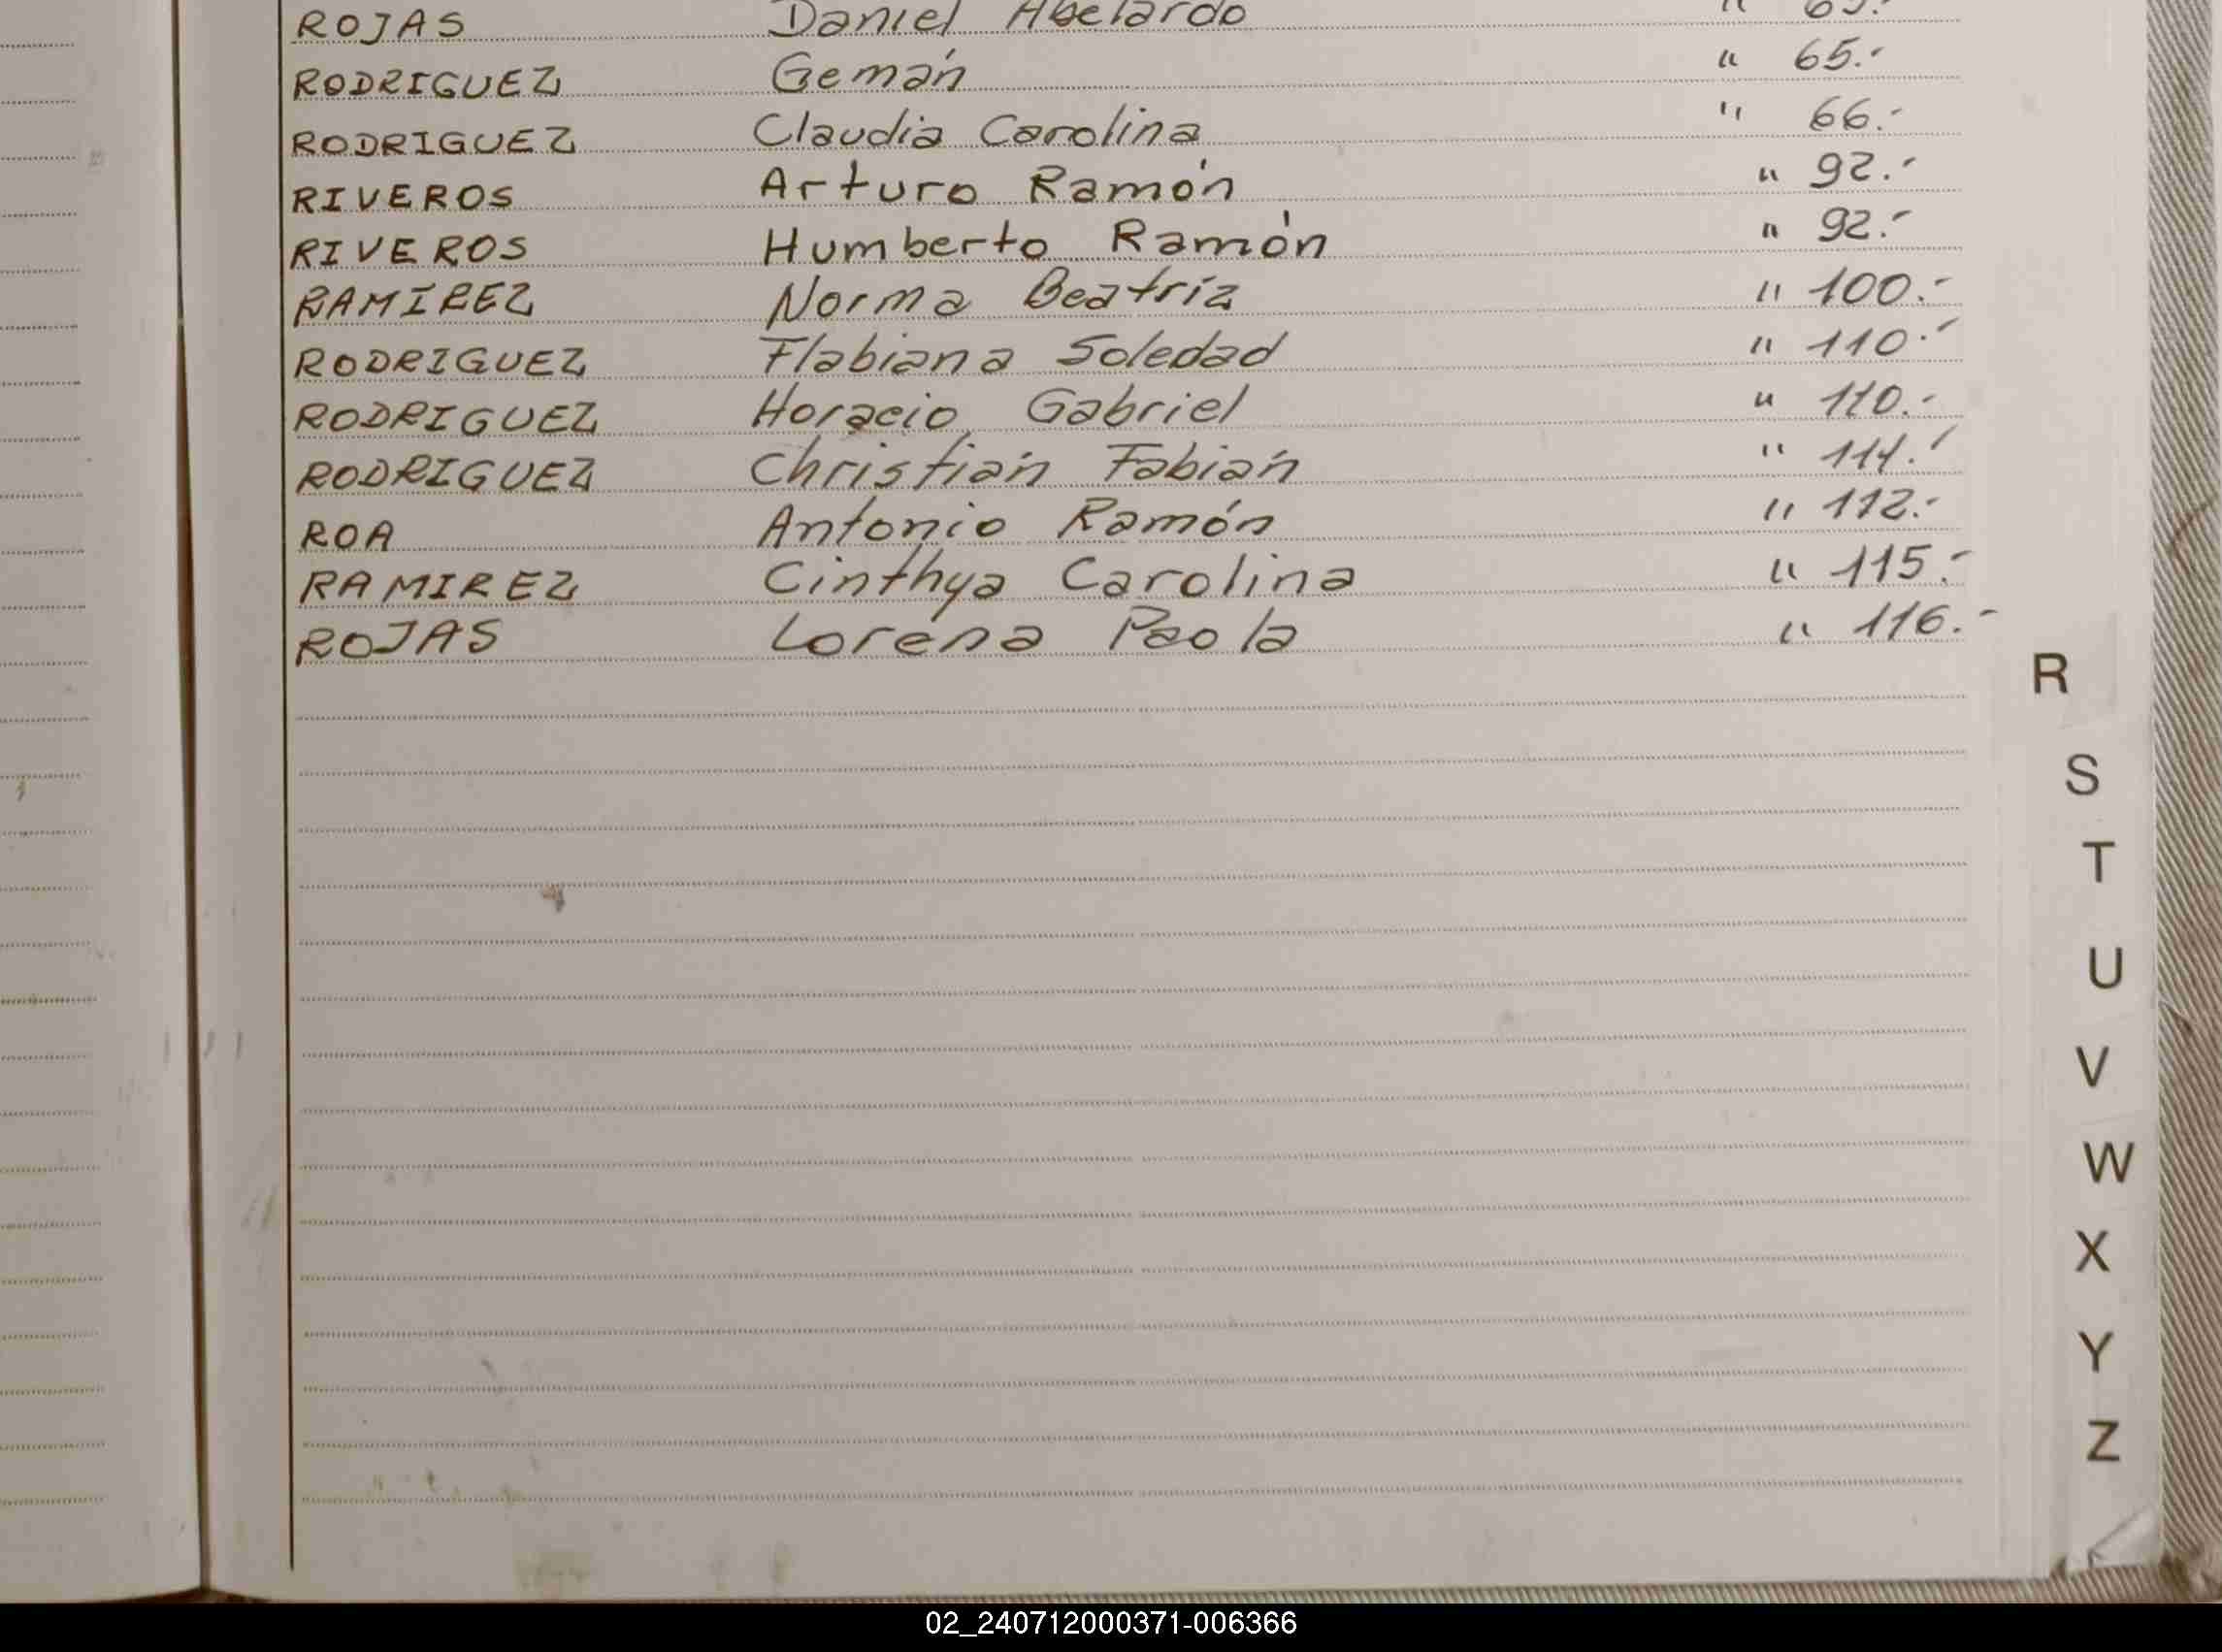 ROJAS Daniel Abelardo " 65.-
RODRIGUEZ Gemán " 65.-
RODRIGUEZ Claudia Carolina " 66.-
RIVEROS Arturo Ramón " 92.-
RIVEROS Humberto Ramón " 92.-
RAMÍREZ Norma Beatríz " 100.-
RODRIGUEZ Flabiana Soledad " 110.-
RODRIGUEZ Horacio Gabriel " 110.-
RODRIGUEZ Christián Fabián " 111.-
ROA Antonio Ramón " 112.-
RAMIREZ Cinthya Carolina " 115.-
ROJAS Lorena Paola " 116.-
R
S
T
U
V
W
X
Y
Z
02_240712000371-006366